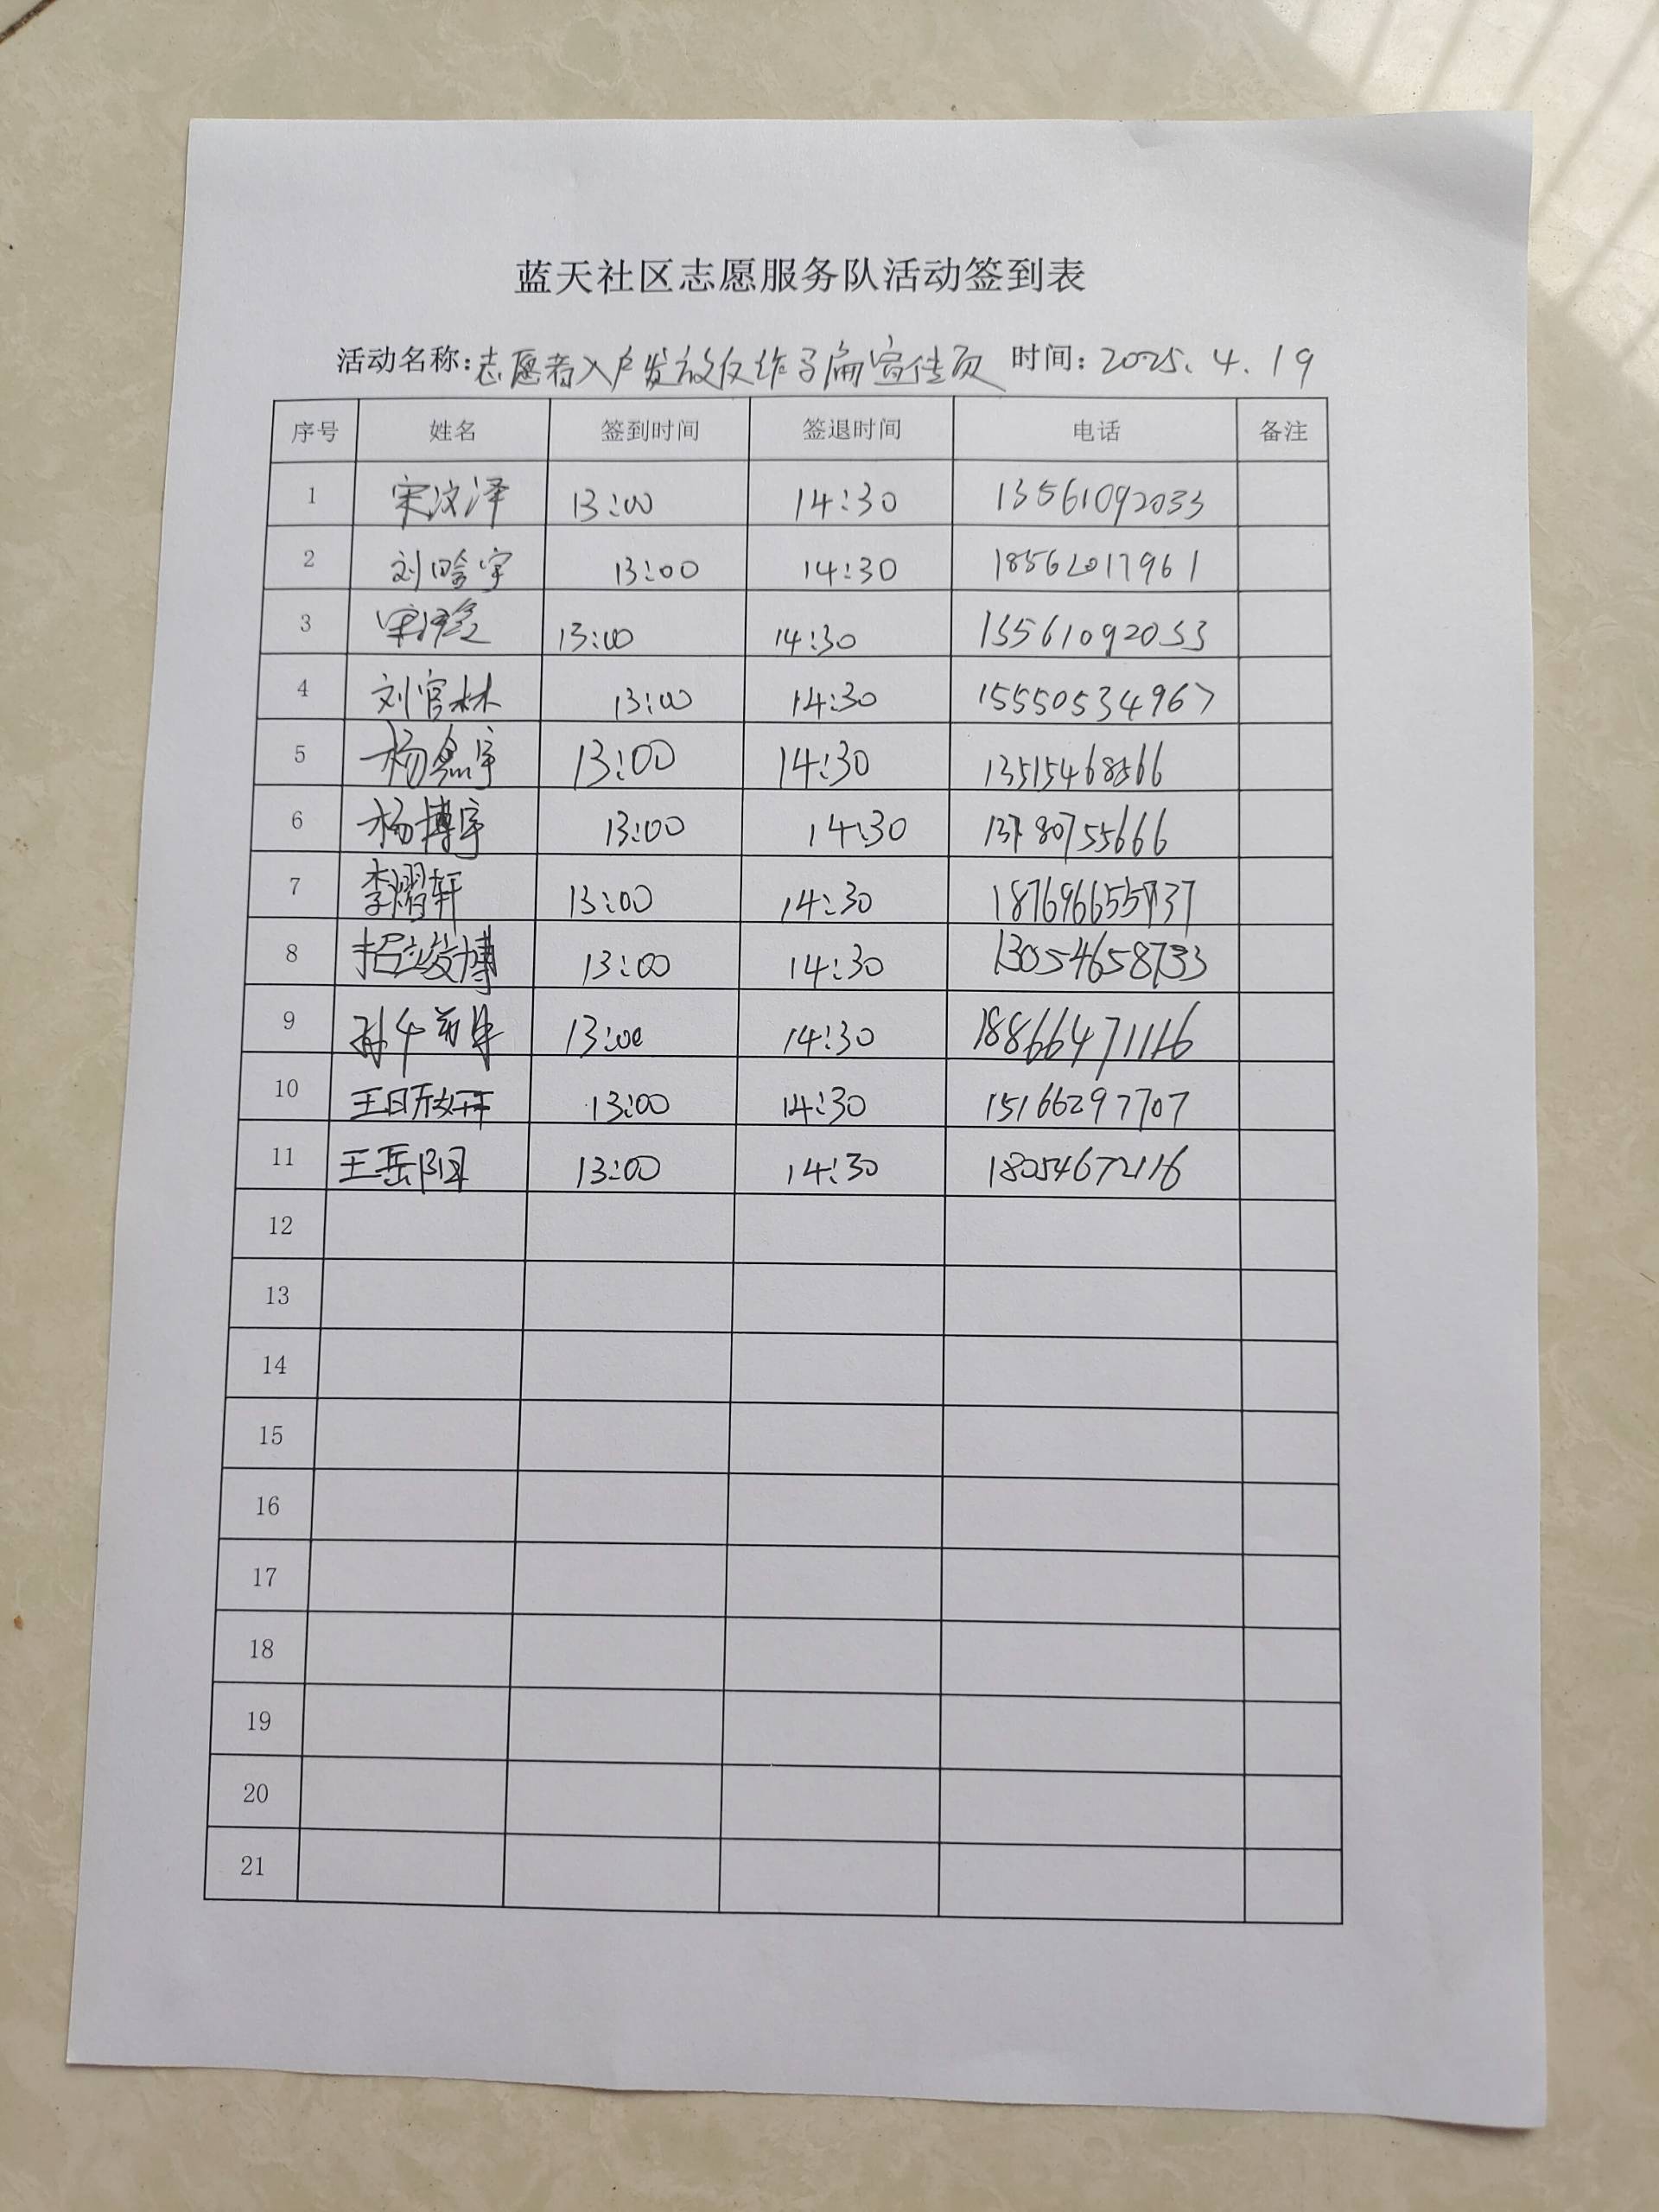 蓝天社区志愿服务队活动签到表
活动名称:志愿者入户发放反诈宣传页 时间:2025.4.19
序号 姓名 签到时间 签退时间 电话 备注
1 宋汶泽 13:00 14:30 13561092033
2 刘晗宇 13:00 14:30 18562017961
3 宋 13:00 14:30 13561092033
4 刘官林 13:00 14:30 15550534967
5 杨鑫宇 13:00 14:30 13515468566
6 杨博宇 13:00 14:30 13780755666
7 李熠轩 13:00 14:30
8 13:00 14:30 13054658733
9 孙 13:00 14:30 18866471116
10 王 13:00 14:30 15166297707
11 王岳阳 13:00 14:30 18054672116
12
13
14
15
16
17
18
19
20
21